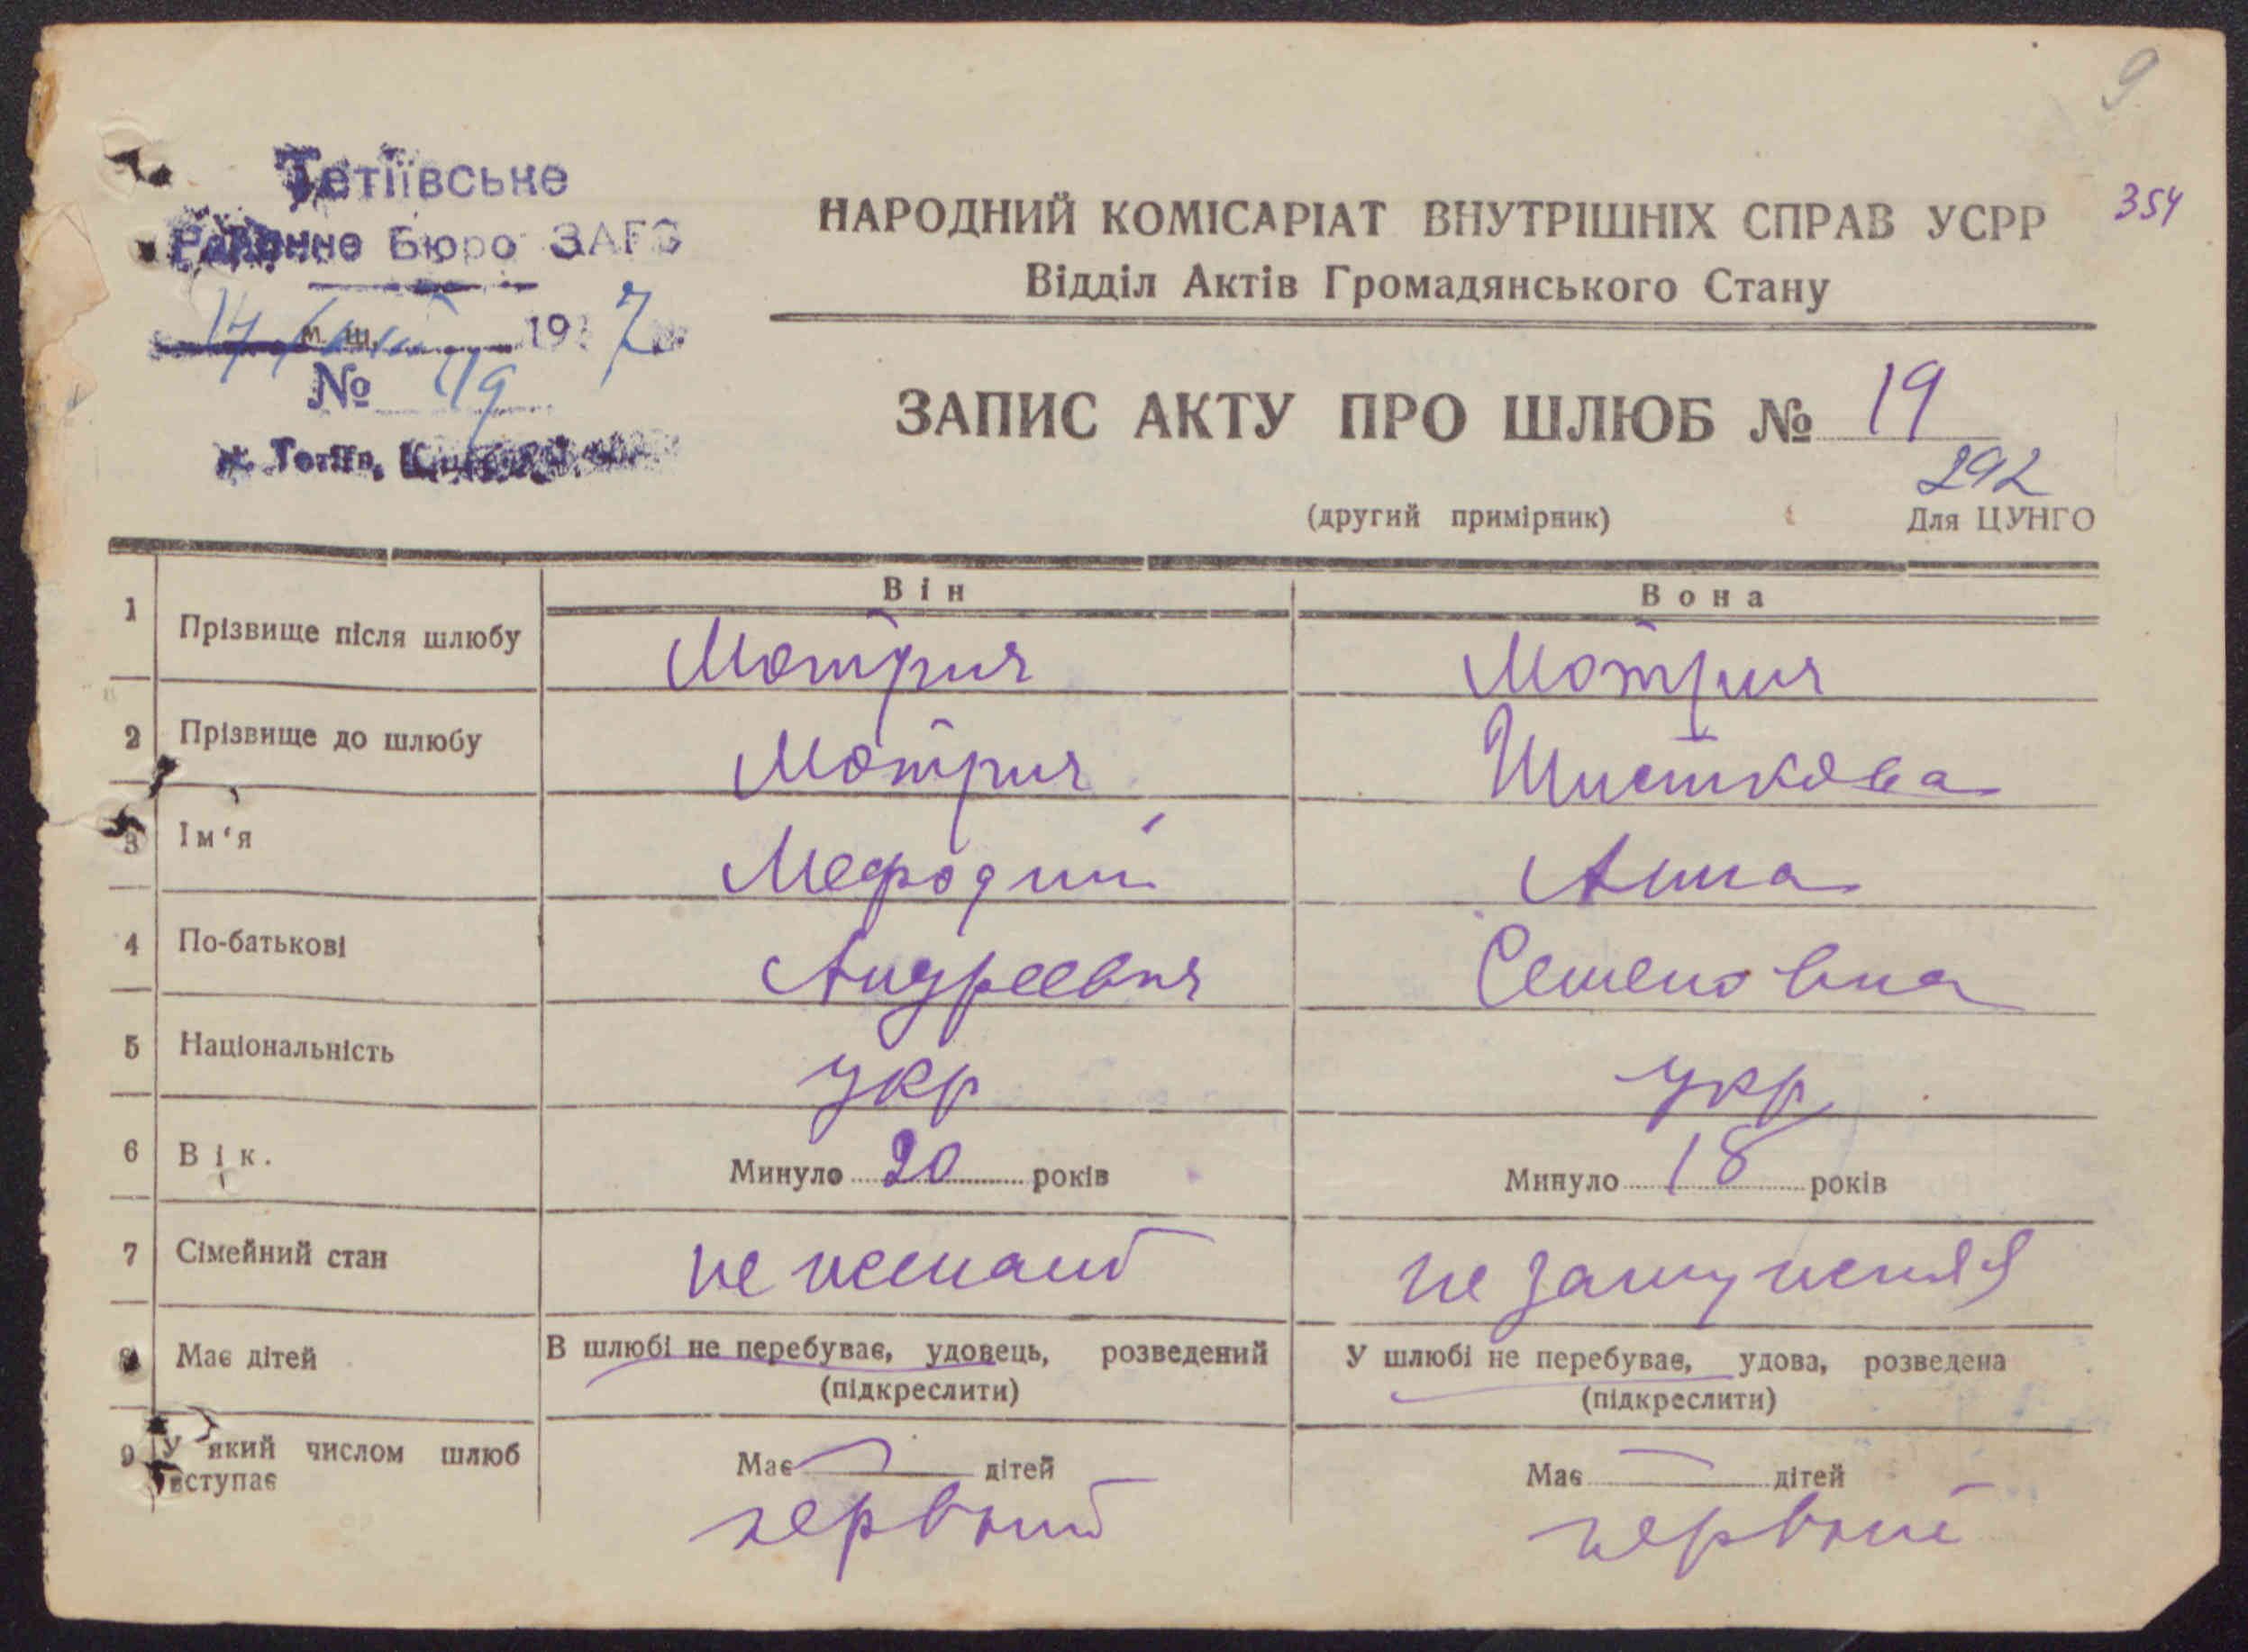 9
354
Тетіївське
Районне Бюро ЗАГС
м. ш. 1937
№ 19
м. Тетіїв,
НАРОДНИЙ КОМІСАРІАТ ВНУТРІШНІХ СПРАВ УСРР
Відділ Актів Громадянського Стану
ЗАПИС АКТУ ПРО ШЛЮБ № 19
292
(другий примірник) Для ЦУНГО
Він Вона
1 Прізвище після шлюбу Мотрич Мотрич
2 Прізвище до шлюбу Мотрич Шисткова
3 Ім'я Мефодий Анна
4 По-батькові Андреевич Семеновна
5 Національність укр укр
6 Вік. Минуло 20 років Минуло 18 років
7 Сімейний стан не женат не замужняя
8 Має дітей В шлюбі не перебуває, удовець, розведений У шлюбі не перебуває, удова, розведена
(підкреслити) (підкреслити)
9 У який числом шлюб вступає Має — дітей Має — дітей
первый первый